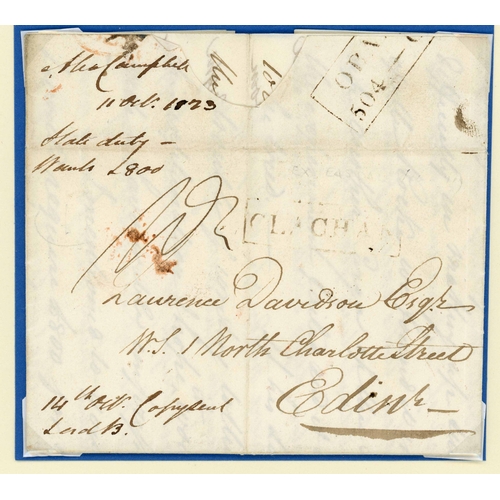 Alex Campbell
11 Oct. 1823
Slate duty —
Wants £800
OBAN
504
CLACHAN
Laurence Davidson Esqr
W.S. 1 North Charlotte Street
Edinr
14th Oct. Copy sent
Lord B.